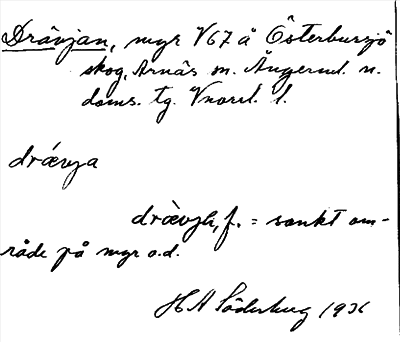 Drävjan, myr V67 å Österbursjö
skog, Arnäs sn. Ångerml. n.
doms. tg. Vnorrl. l.
drǽvja
drævjh, f. = sankt om-
råde på myr o.d.
H A Söderberg 1936